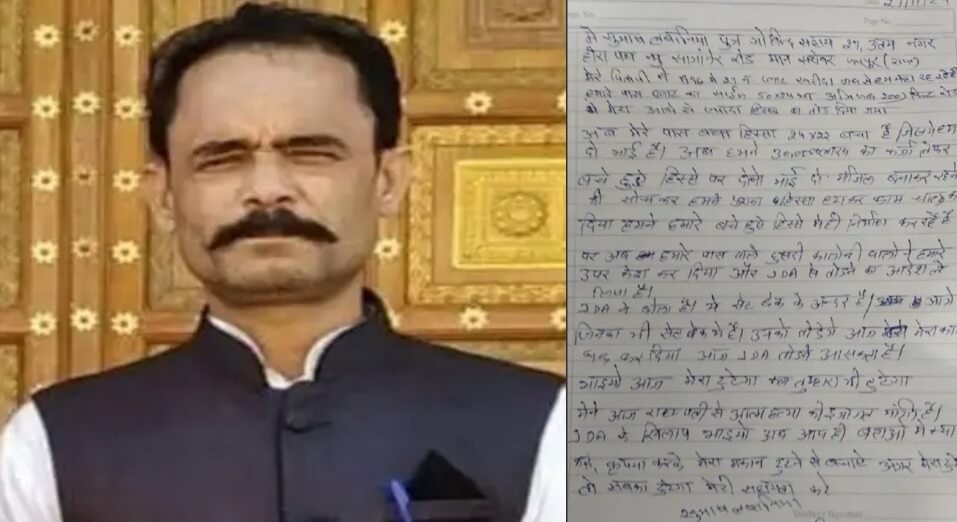 Page No.
मै सुभाष लबानिया पुत्र गोविन्द सहाय 27, उतम नगर
हीरा पथ न्यु सांगानेर रोड मान सरोवर जयपुर (राज)
मेरे पिताजी ने में 27 न. हम रह रहे है
हमारे पास का साईज 50x22 था 200 फिट रोड
मेरा आधे से ज्यादा हिस्सा को तोड दिया गया
अब मेरे पास बचा हिस्सा 25x22 बचा है जिसमे हम
दो भाई है। अब हमने का कर्जा लेकर
बचे हुऐ हिस्से पर दोनो भाई दो मंजिल बनाकर रहने
की सोचकर हमने हिस्सा हटाकर काम चालू कर
दिया हमने हमारे बचे हुऐ हिस्से मे ही निर्माण कर रहे है
पर अब हमारे पास वाले दुसरी कालोनी वालो ने हमारे
उपर केश कर दिया और JDA से तोडने का आदेश ले
लिया है।
JDA ने बोला है। ये सेट बेक के अन्दर है। आगे
जिनका भी सेट बेक मे है। उनको तोडेगे आज मेरा काम
बन्द कर दिया आज JDA तोडने आ सकता है।
भाईयो आज मेरा टुटेगा कल तुम्हारा भी टुटेगा
मैने आज राष्ट्रपती से आत्महत्या की इजाजत मांगी है।
JDA के खिलाप भाईयो अब आप ही बताओ मे क्या
करू, कृपया करके मेरा मकान टुटने से बचाऐ अगर मेरा टुटे
तो सबका टुटेगा मेरी सहायता करे
सुभाष लबानिया
Teacher's Signature